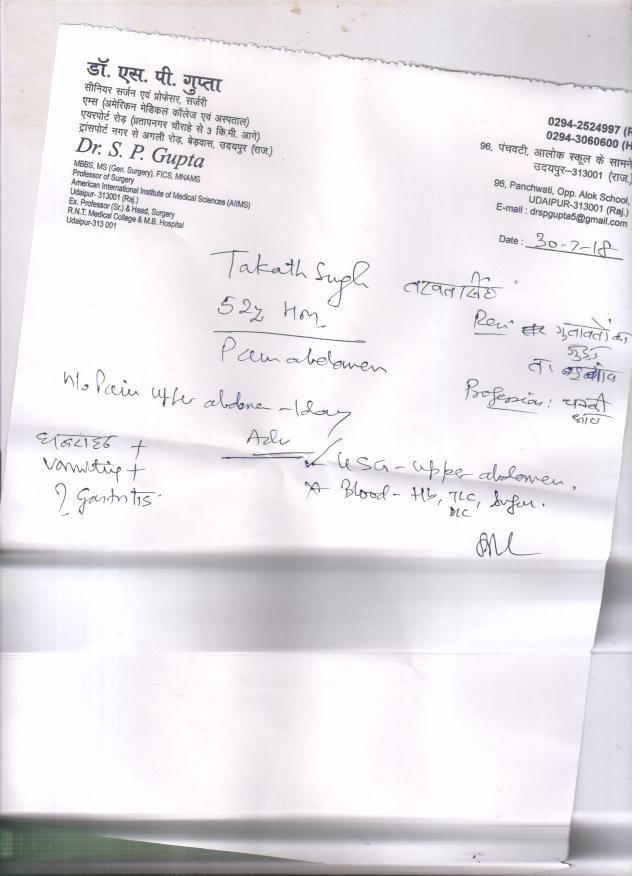 डॉ. एस. पी. गुप्ता
सीनियर सर्जन एवं प्रोफेसर, सर्जरी
एम्स (अमेरिकन मेडिकल कॉलेज एवं अस्पताल)
एयरपोर्ट रोड़ (प्रतापनगर चौराहे से 3 कि.मी. आगे)
ट्रांसपोर्ट नगर से अगली रोड़, बेड़वास, उदयपुर (राज.)
Dr. S. P. Gupta
MBBS, MS (Gen. Surgery), FICS, MNAMS
Professor of Surgery
American International Institute of Medical Sciences (AIIMS)
Udaipur- 313001 (Raj.)
Ex. Professor (Sr.) & Head, Surgery
R.N.T. Medical College & M.B. Hospital
Udaipur-313 001
0294-2524997 (R
0294-3060600 (H
96, पंचवटी, आलोक स्कूल के सामने
उदयपुर–313001 (राज.
96, Panchwati, Opp. Alok School,
UDAIPUR-313001 (Raj.)
E-mail : drspgupta5@gmail.com
Date : 30-7-18
Takath Singh तख्तसिंह
52y
Pain abdomen
गुड़ा
Profession:
H/o Pain upper abdomen - 1 day
घबराहट +
Vomiting +
? Gastritis
Adv
USG - upper abdomen.
Blood - Hb, TLC, Sugar.
DLC